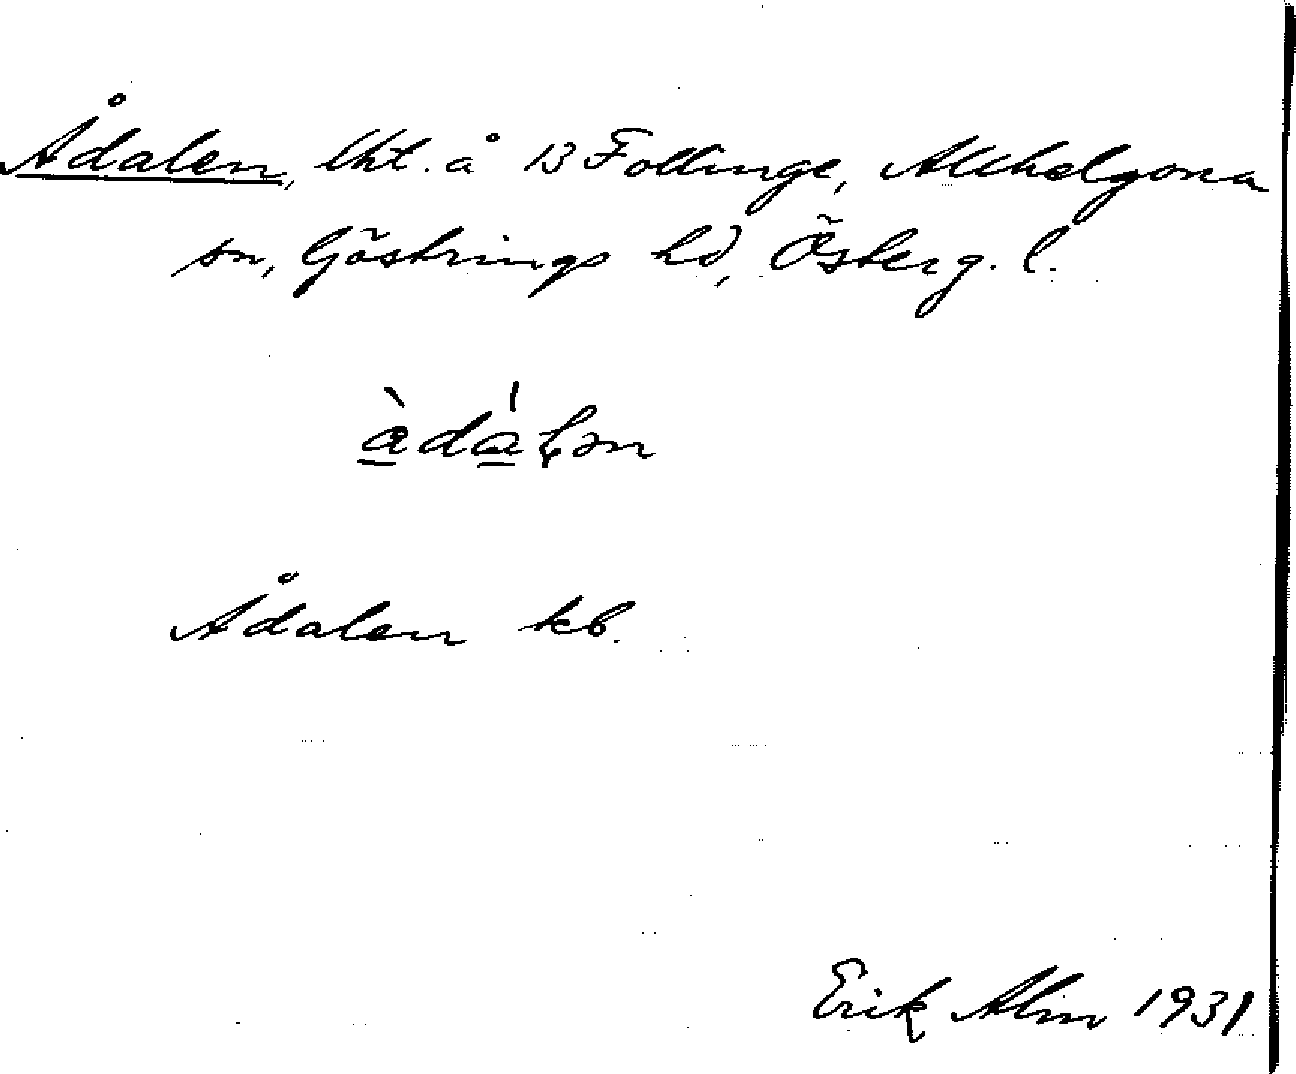 Ådalen, lht. å 1/3 Follinge, Allhelgona
sn, Göstrings hd, Österg. l.
Ådalen kb.
Erik Alm 1931